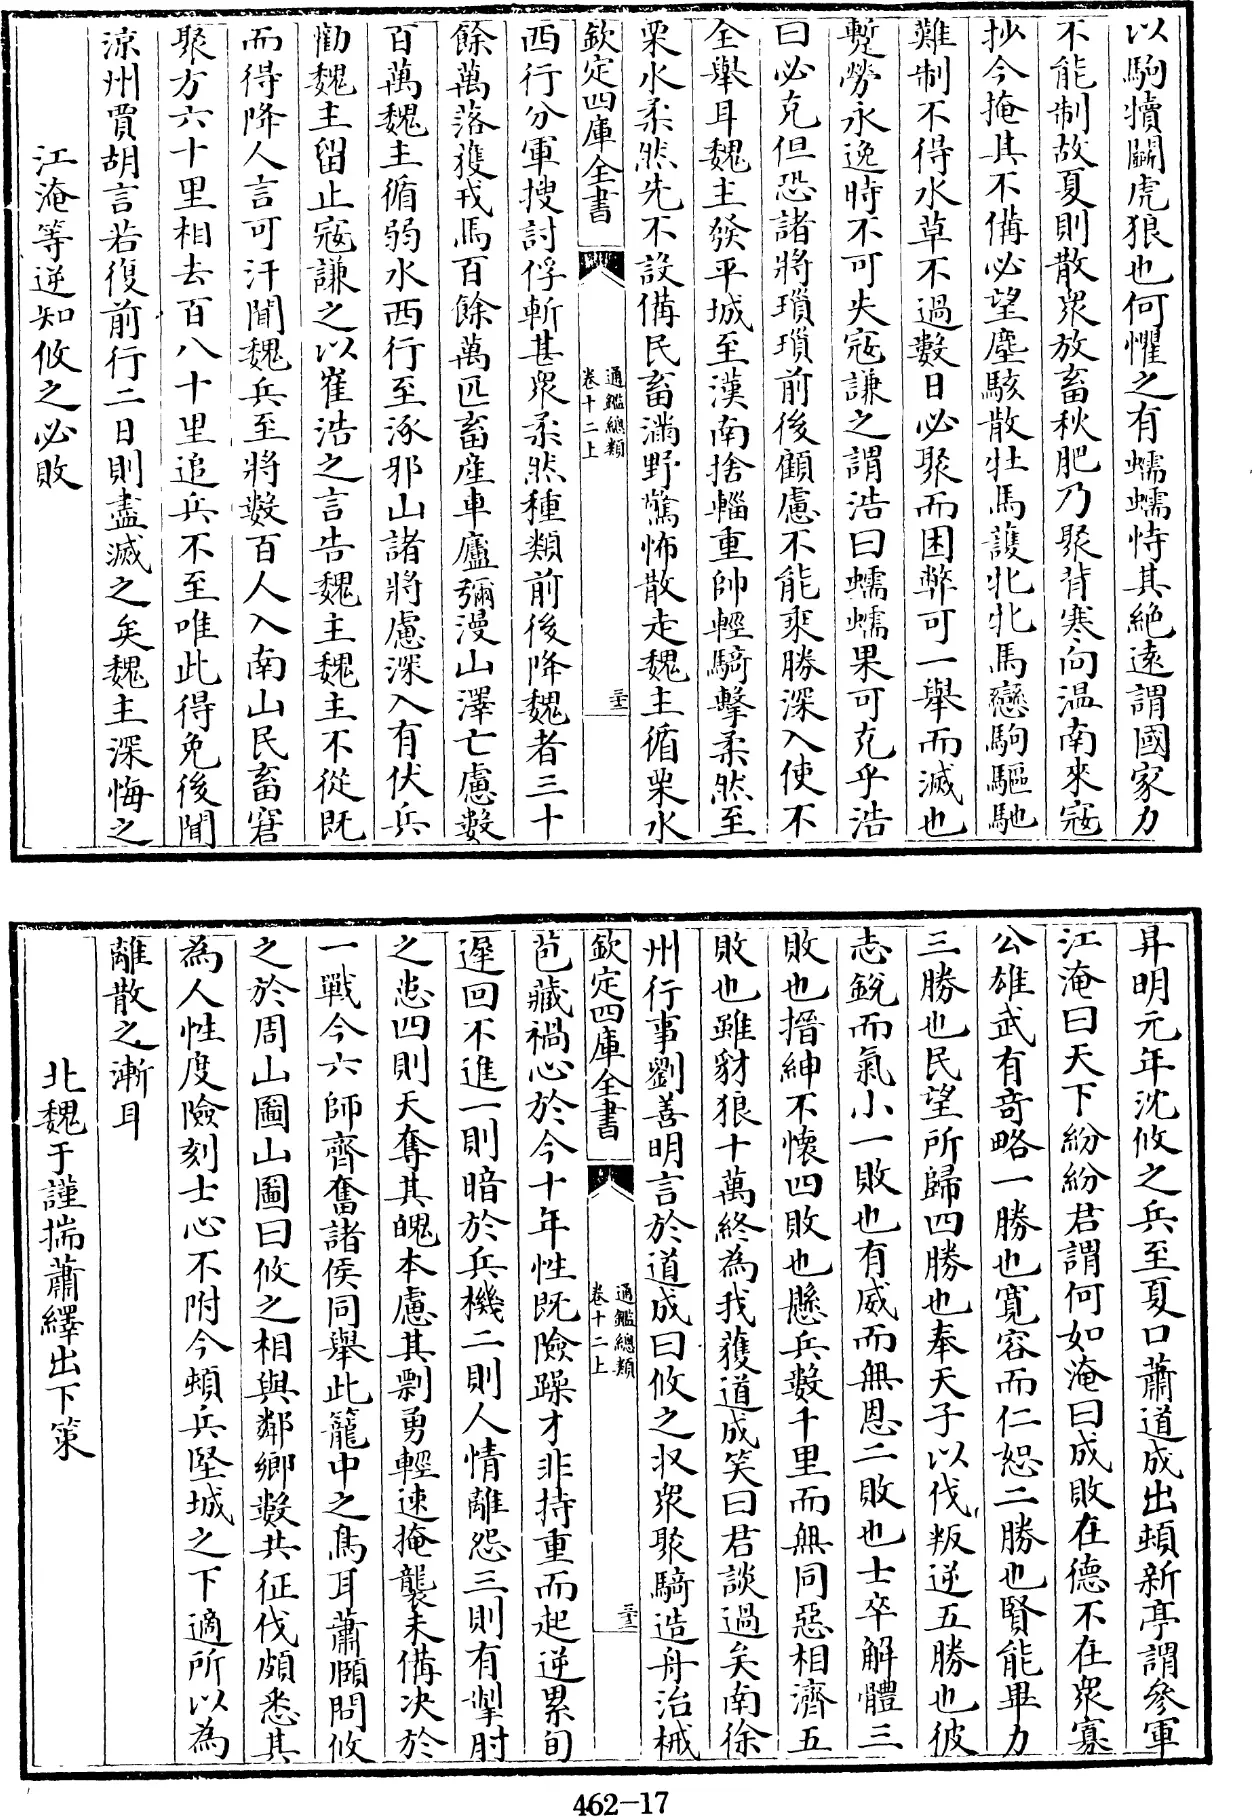 以駒犢鬬虎狼也何懼之有蠕蠕恃其絶遠謂國家力
不能制故夏則散衆放畜秋肥乃聚背寒向温南來宼
抄今掩其不備必望塵駭散牡馬護牝牝馬戀駒驅馳
難制不得水草不過數日必聚而困弊可一舉而滅也
蹔勞永逸時不可失宼謙之謂浩曰蠕蠕果可克乎浩
曰必克但恐諸將瑣瑣前後顧慮不能乘勝深入使不
全舉耳魏主發平城至漠南捨輜重帥輕騎擊柔然至
栗水柔然先不設備民畜滿野驚怖散走魏主循栗水
欽定四庫全書
通鑑總類
卷十二上
三十二
西行分軍搜討俘斬甚衆柔然種類前後降魏者三十
餘萬落獲戎馬百餘萬匹畜産車廬彌漫山澤亡慮數
百萬魏主循弱水西行至涿邪山諸將慮深入有伏兵
勸魏主留止宼謙之以崔浩之言告魏主魏主不從既
而得降人言可汗聞魏兵至將數百人入南山民畜窘
聚方六十里相去百八十里追兵不至唯此得免後聞
涼州賈胡言若復前行二日則盡滅之矣魏主深悔之
江淹等逆知攸之必敗
昇明元年沈攸之兵至夏口蕭道成出頓新亭謂參軍
江淹曰天下紛紛君謂何如淹曰成敗在德不在衆寡
公雄武有奇略一勝也寛容而仁恕二勝也賢能畢力
三勝也民望所歸四勝也奉天子以伐叛逆五勝也彼
志銳而氣小一敗也有威而無恩二敗也士卒解體三
敗也搢紳不懷四敗也懸兵數千里而無同惡相濟五
敗也雖豺狼十萬終為我獲道成笑曰君談過矣南徐
州行事劉善明言於道成曰攸之收衆聚騎造舟治械
欽定四庫全書
通鑑總類
卷十二上
三十三
苞藏禍心於今十年性既險躁才非持重而起逆累旬
遲回不進一則暗於兵機二則人情離怨三則有掣肘
之患四則天奪其魄本慮其剽勇輕速掩襲未備决於
一戰今六師齊奮諸侯同舉此籠中之鳥耳蕭賾問攸
之於周山圖山圖曰攸之相與鄰鄉數共征伐頗悉其
為人性度險刻士心不附今頓兵堅城之下適所以為
離散之漸耳
北魏于謹揣蕭繹出下策
462-17